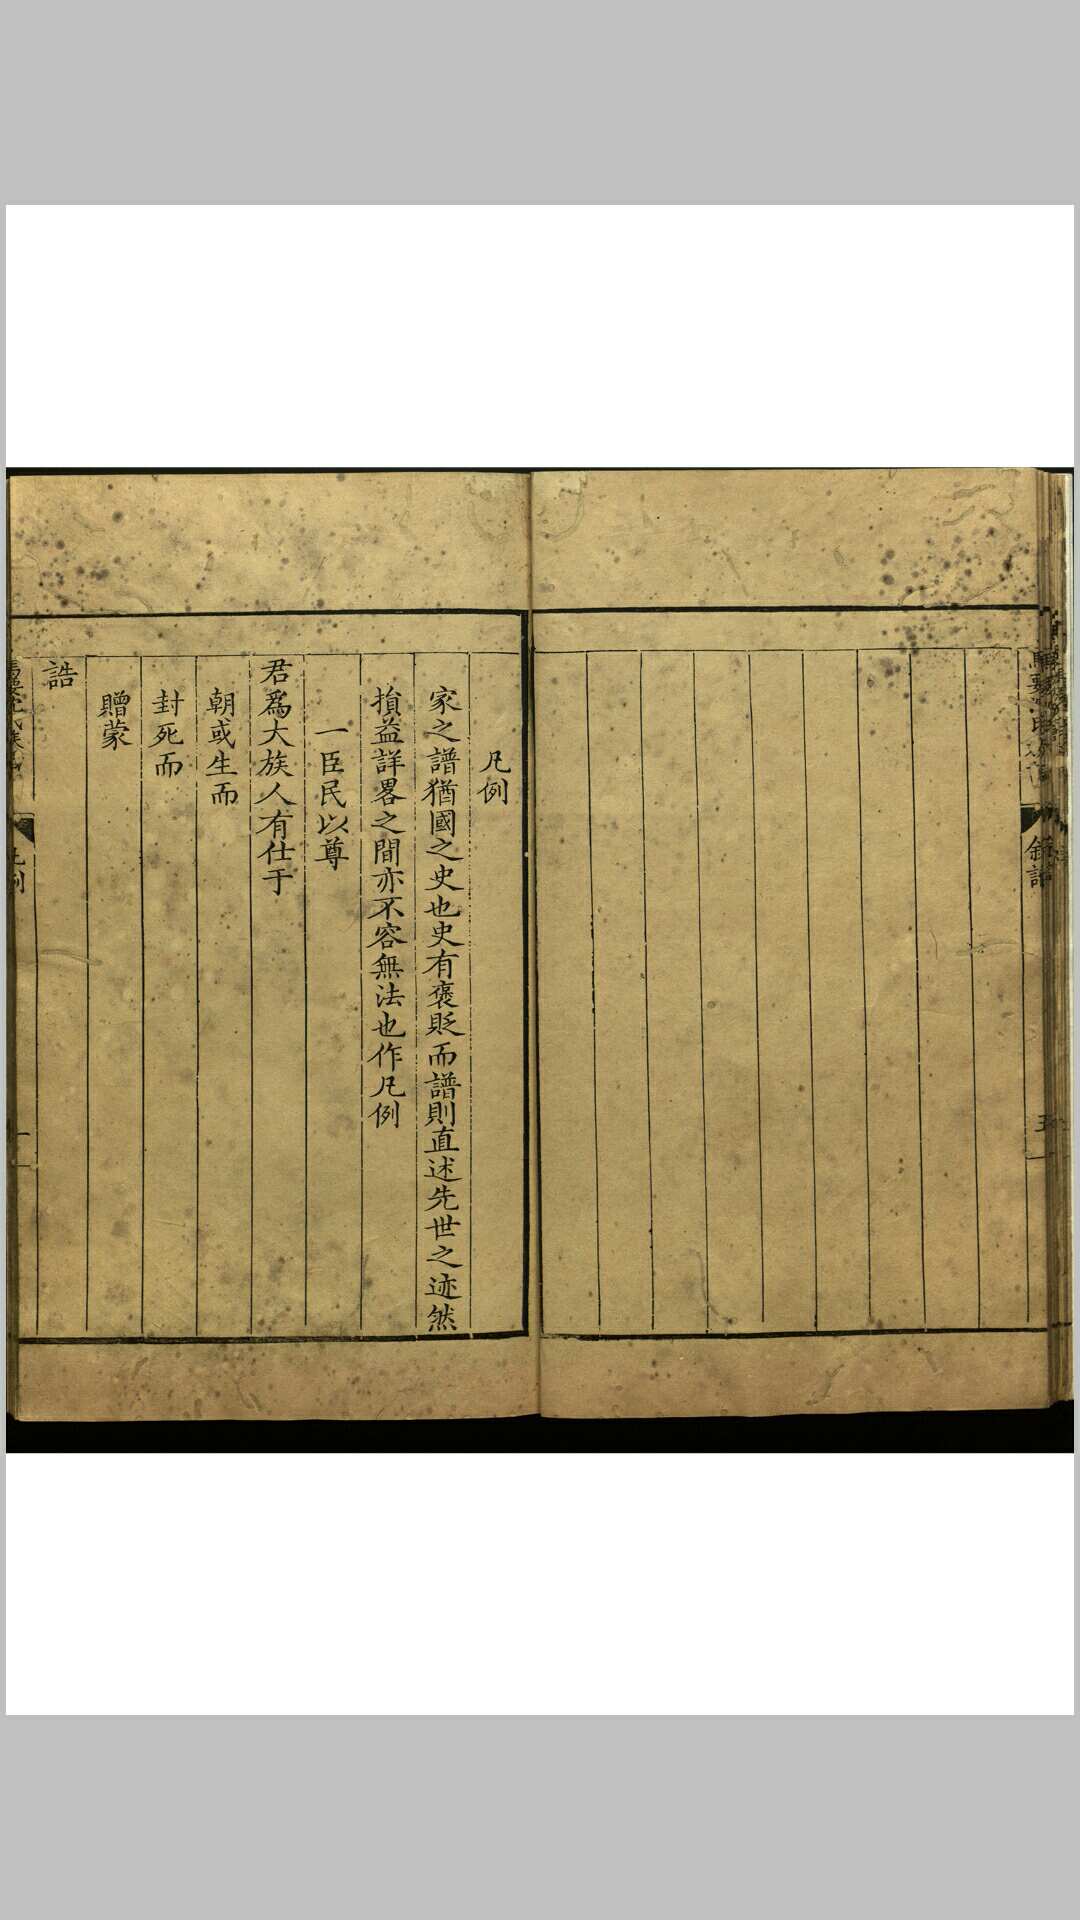 凡例
家之譜猶國之史也史有褒貶而譜則直述先世之迹然
損益詳畧之間亦不容無法也作凡例
一臣民以尊
君爲大族人有仕于
朝或生而
封死而
贈蒙
誥